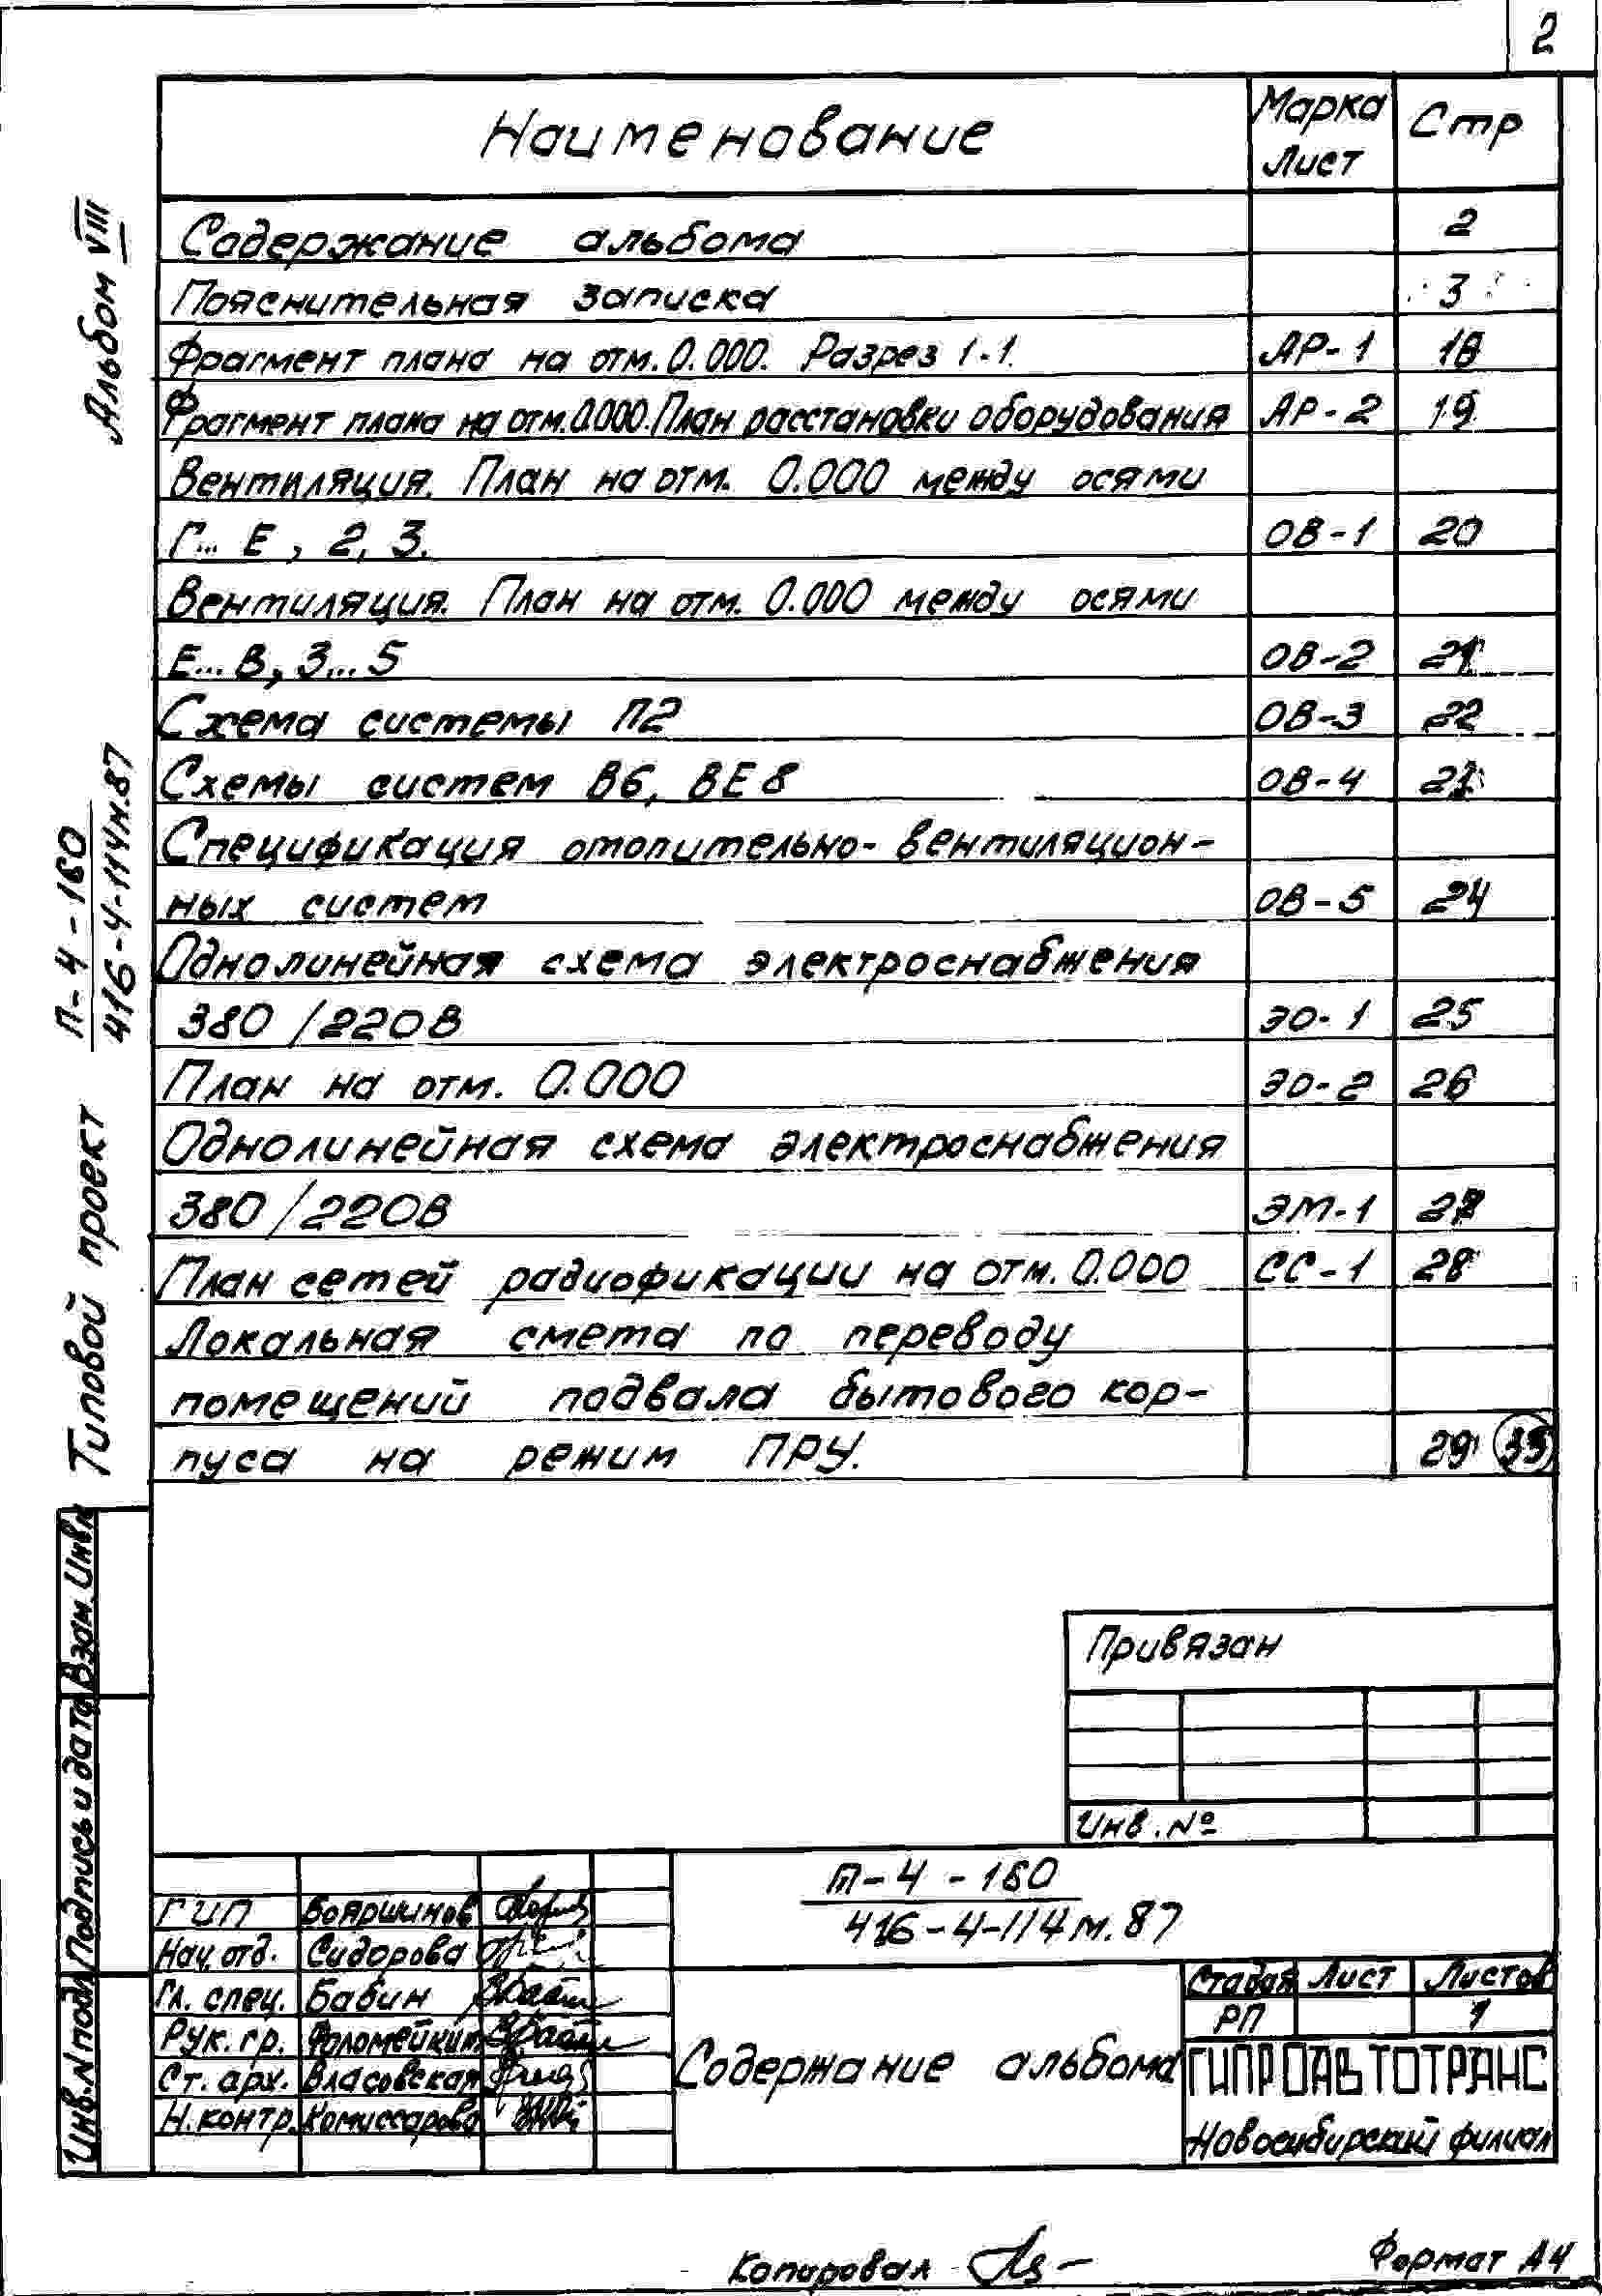 2
Наименование Марка Лист Стр
Содержание альбома 2
Пояснительная записка 3
Фрагмент плана на отм. 0.000. Разрез 1-1. АР-1 18
Фрагмент плана на отм. 0.000. План расстановки оборудования АР-2 19
Вентиляция. План на отм. 0.000 между осями
Г... Е, 2, 3. ОВ-1 20
Вентиляция. План на отм. 0.000 между осями
Е... В, 3... 5 ОВ-2 21
Схема системы П2 ОВ-3 22
Схемы систем В6, ВЕ8 ОВ-4
Спецификация отопительно-вентиляцион-
ных систем ОВ-5 24
Однолинейная схема электроснабжения
380/220В ЭО-1 25
План на отм. 0.000 ЭО-2 26
Однолинейная схема электроснабжения
380/220В ЭМ-1 27
План сетей радиофикации на отм. 0.000 СС-1 28
Локальная смета по переводу
помещений подвала бытового кор-
пуса на режим ПРУ. 29
Альбом VIII
Типовой проект П-4-160
416-4-114м.87
Взам. Инв.
Подпись и дата
Инв. N подл
Привязан
Инв. №
П-4-160
416-4-114м.87
ГИП Бояршинов
Нач. отд. Сидорова
Гл. спец. Бабин
Рук. гр. Фоломейкин
Ст. арх. Власовская
Н. контр. Комиссарова
Содержание альбома
Стадия Лист Листов
РП 1
ГИПРОАВТОТРАНС
Новосибирский филиал
Копировал
Формат А4